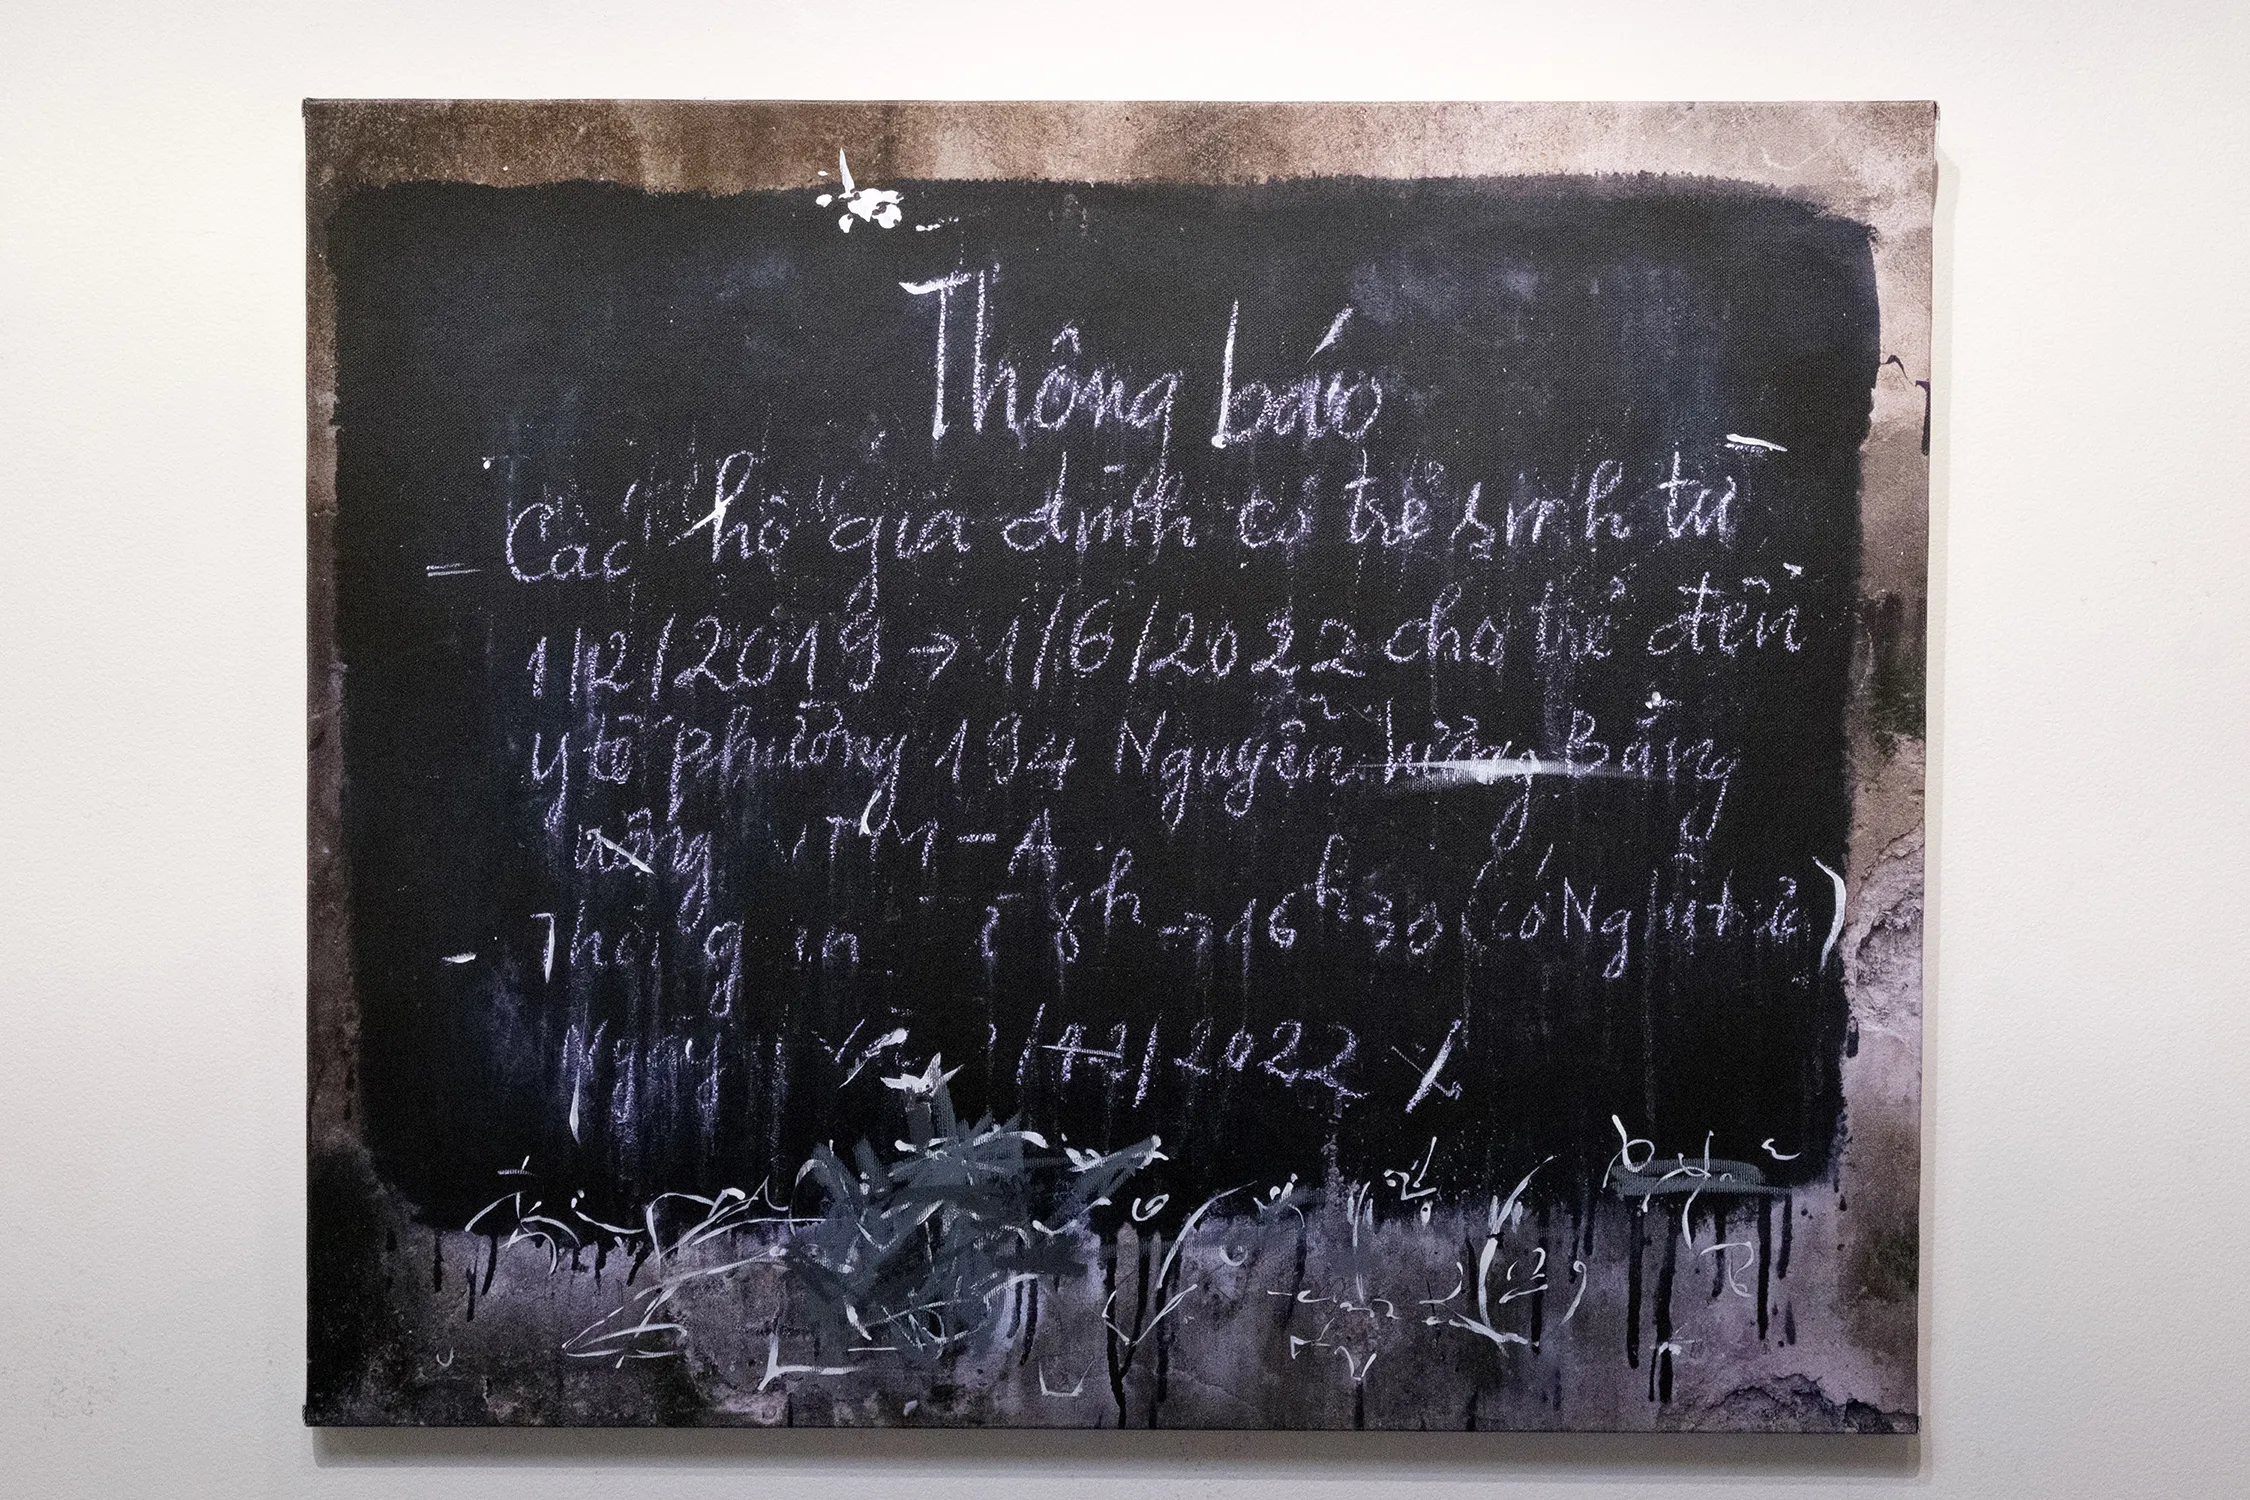 Thông báo
= Các hộ gia đình có trẻ sinh từ
1/2/2019 → 1/6/2022 cho trẻ đến
y tế phường 194 Nguyễn Lương Bằng
uống VTM-A
- Thời gian 8h → 16h30 (có Nghỉ trưa)
Ngày 1/12/2022